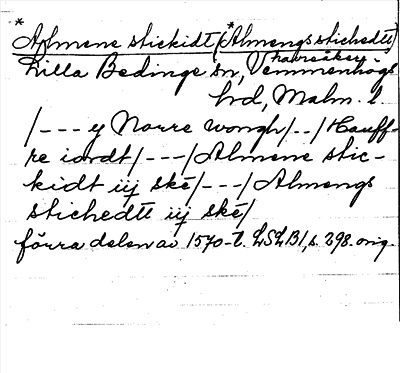 *Almene stickidt (*Almengs stichedtt)
havsåker
Lilla Beddinge sn, Vemmenhögs
hd, Malm. l.
/--- y Norre wongh/../Hauff-
re iordt/---/Almene stic-
kidt iij skē/---/Almengs
stichedtt iij skē/
förra delen av 1570-t. LSLB1, s. 298. orig.